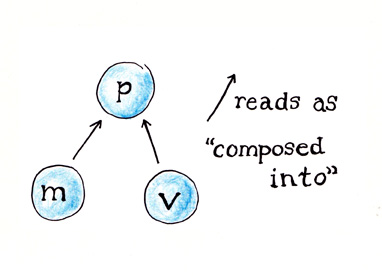 p
m
v
reads as
"composed
into"